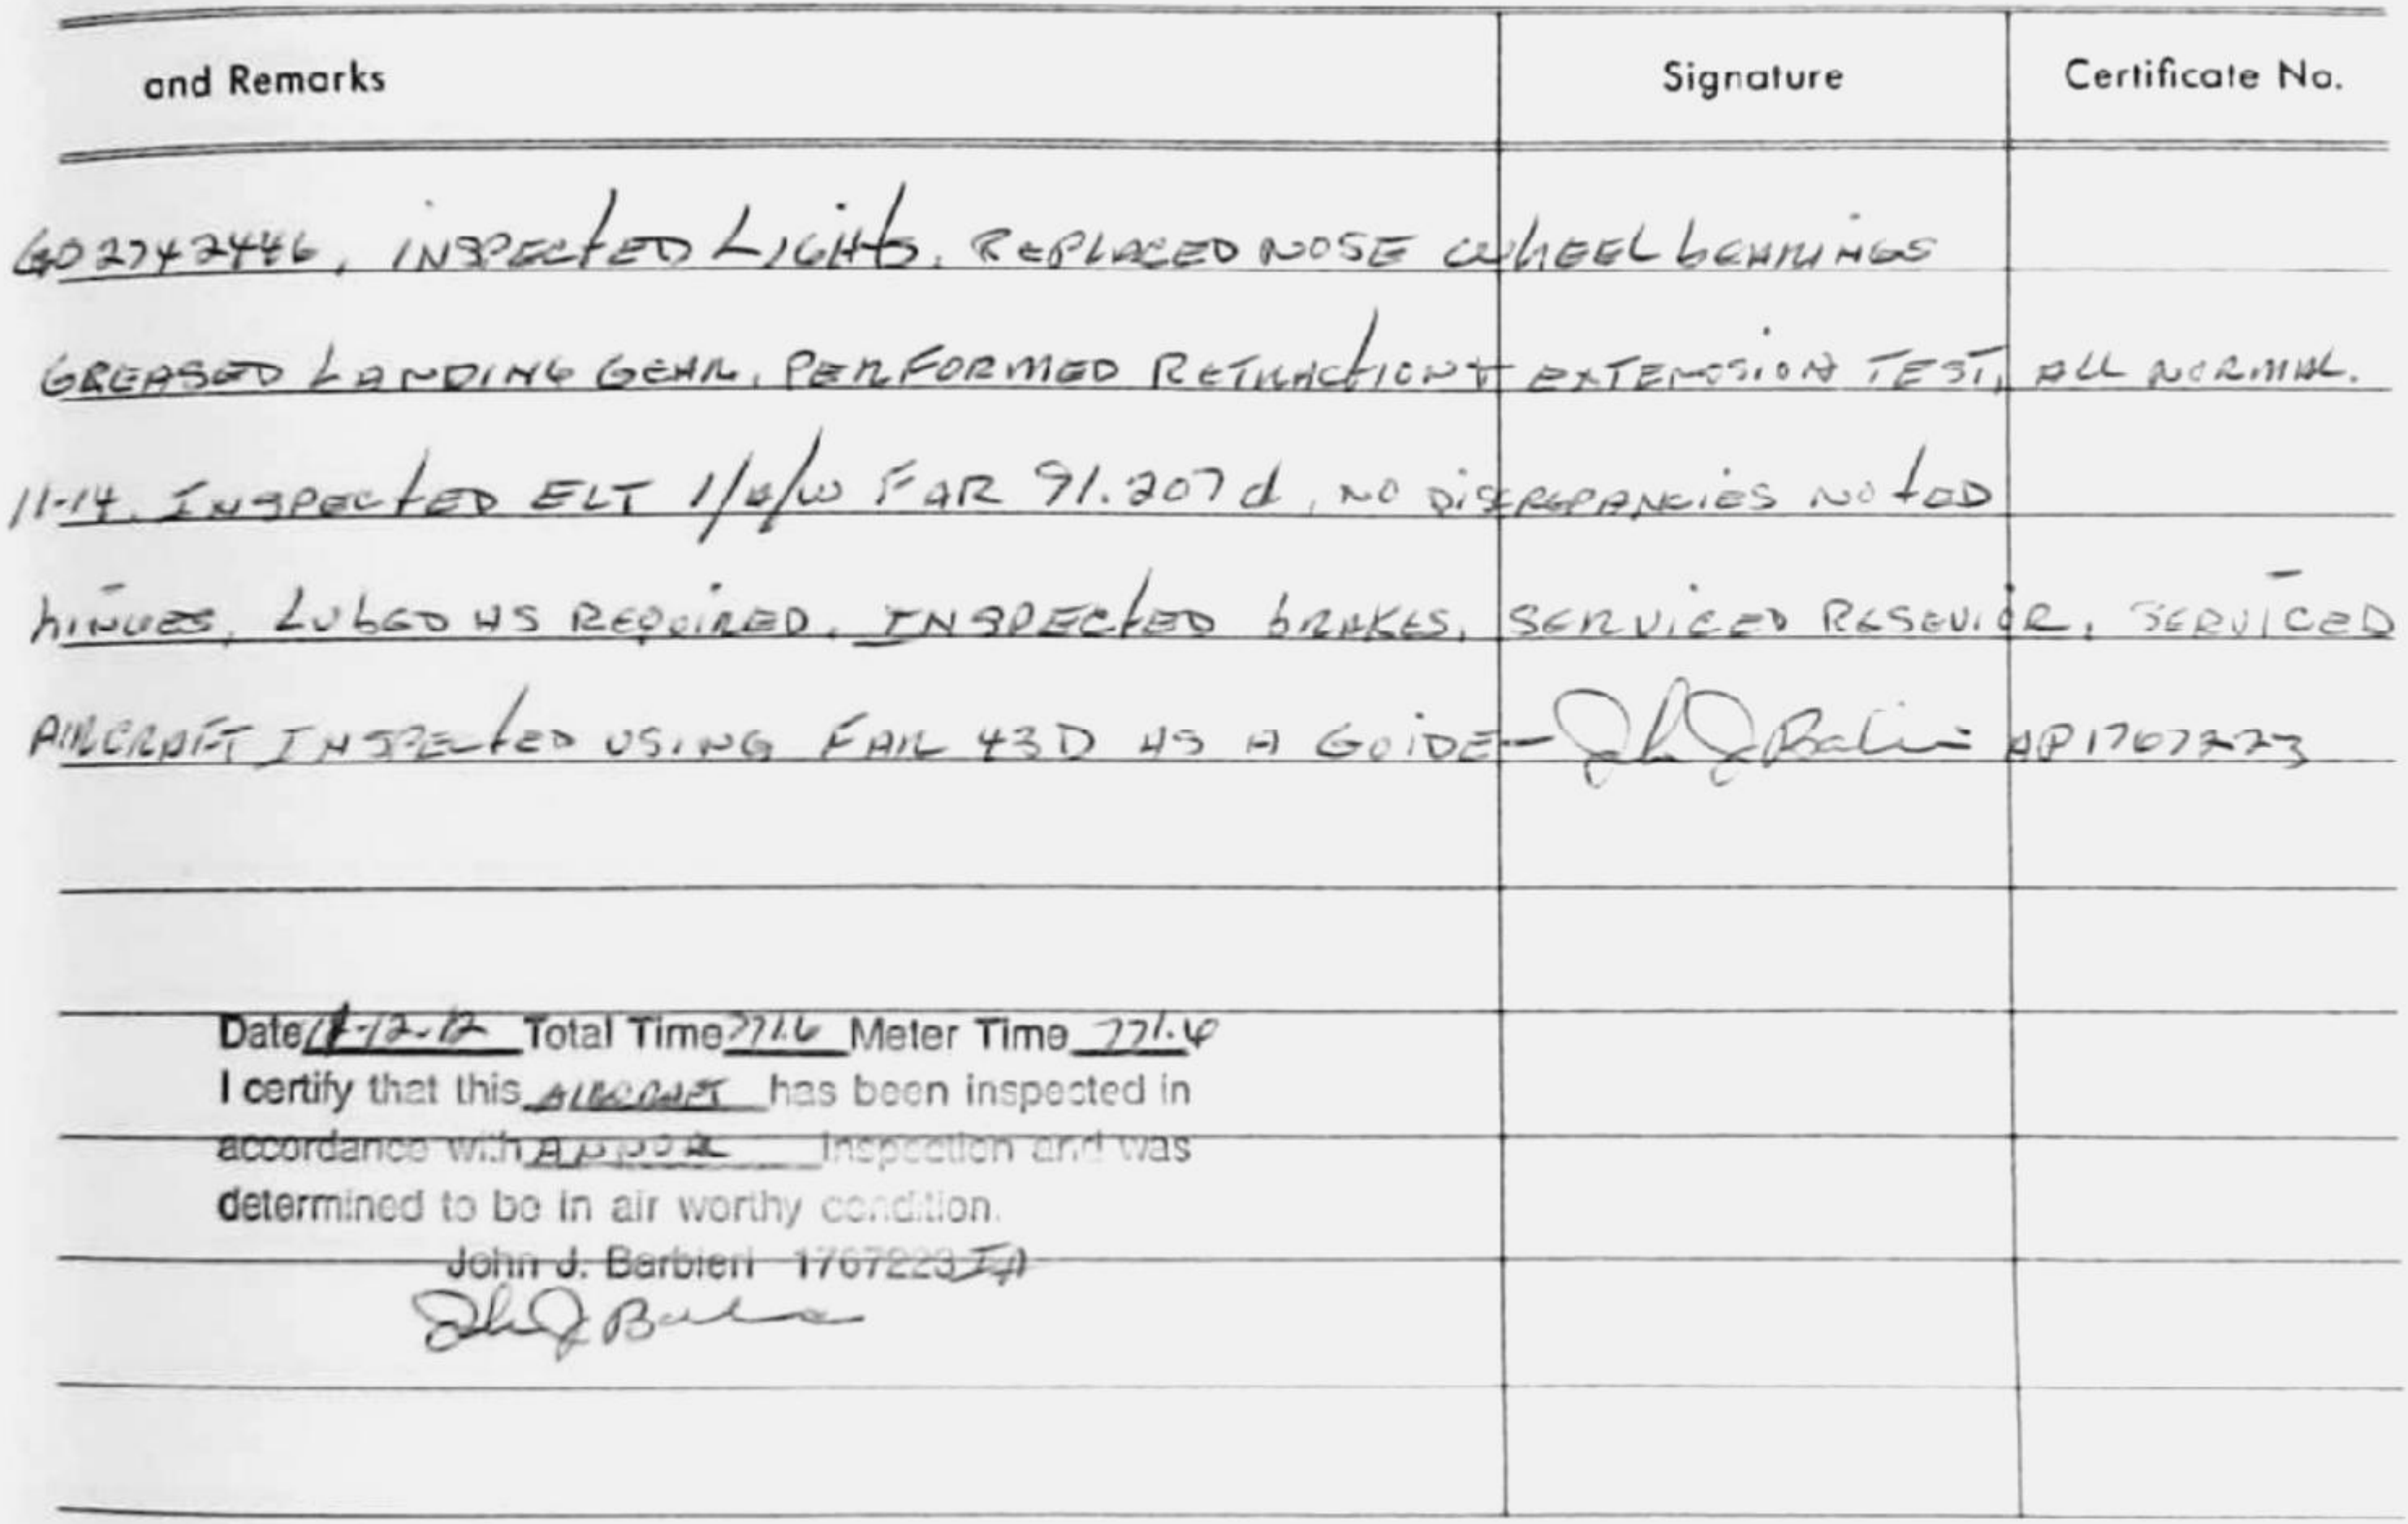 and Remarks Signature Certificate No.
GD2742446, INSPECTED LIGHTS. REPLACED NOSE WHEEL BEARINGS
GREASED LANDING GEAR, PERFORMED RETRACTION + EXTENSION TEST, ALL NORMAL.
11-14. INSPECTED ELT I/A/W FAR 91.207d, NO DISCREPANCIES NOTED
HINGES, LUBED AS REQUIRED. INSPECTED BRAKES, SERVICED RESEVIOR. SERVICED
AIRCRAFT INSPECTED USING FAR 43D AS A GUIDE - AP1767223
Date 12-12 Total Time 771.6 Meter Time 771.6
I certify that this AIRCRAFT has been inspected in
accordance with ANNUAL inspection and was
determined to be in air worthy condition.
John J. Barbieri 1767223 IA